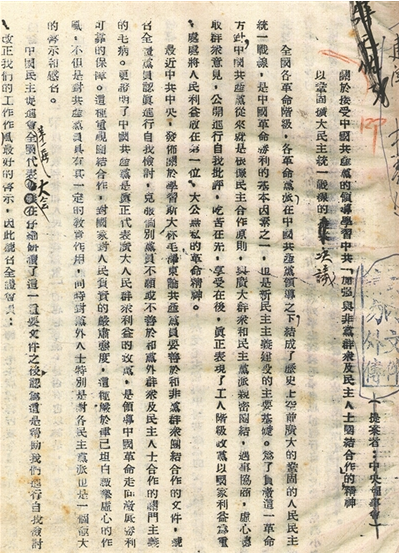 提案者：中央理事會
關於接受中國共產黨的領導學習中共「加強與非黨群衆及民主人士團結合作」的精神
以鞏固擴大民主統一戰線的決議
全國各革命階級，各革命黨派在中國共產黨領導之下結成了歷史上空前廣大的鞏固的人民民主
統一戰線，是中國革命勝利的基本因素之一，也是新民主主義建設的主要基礎。爲了負責這一革命
方針，中國共產黨從來就是根據民主合作原則，與廣大群衆和民主黨派親密團結，遇事協商，虛心聽
取群衆意見，公開進行自我批評，吃苦在先，享受在後，眞正表現了工人階級政黨以國家利益爲重
處處將人民利益放在第一位，大公無私的革命精神。
最近中共中央，發佈關於學習斯大林毛澤東論共產黨員要善於和非黨群衆團結合作的文件，號
召全黨黨員認眞進行自我檢討，克服個別黨員不願或不善於和黨外群衆及民主人士合作的關門主義
的毛病。更證明了中國共產黨是眞正代表廣大人民群衆利益的政黨，是領導中國革命走向徹底勝利
可靠的保障。這種重視團結合作，對國家對人民負責的嚴肅態度，這種嚴於律己坦白誠懇虛心的作
風，不但是對共產黨員具有一定的教育作用，同時對黨外人士特別是對各民主黨派也是一個極大
的啓示和感召。
中國民主促進會全國代表大會在仔細研讀了這一重要文件之後認爲這是幫助我們進行自我檢討
改正我們的工作作風最好的啓示，因此號召全體會員：